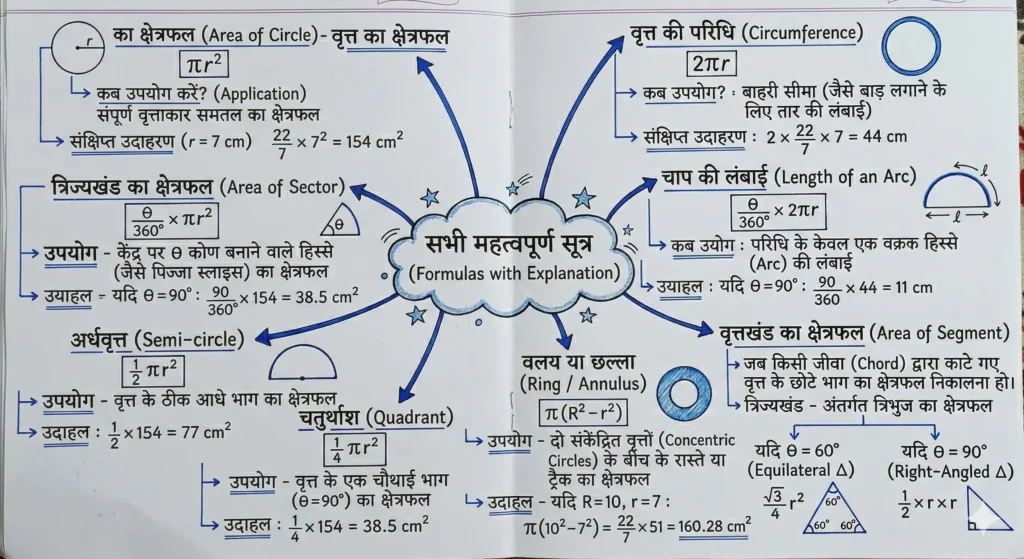 r
का क्षेत्रफल (Area of Circle) - वृत्त का क्षेत्रफल
πr²
कब उपयोग करें? (Application)
संपूर्ण वृत्ताकार समतल का क्षेत्रफल
संक्षिप्त उदाहरण (r = 7 cm) 22/7 × 7² = 154 cm²
वृत्त की परिधि (Circumference)
2πr
कब उपयोग? : बाहरी सीमा (जैसे बाड़ लगाने के
लिए तार की लंबाई)
संक्षिप्त उदाहरण : 2 × 22/7 × 7 = 44 cm
त्रिज्यखंड का क्षेत्रफल (Area of Sector)
θ/360° × πr²
θ
उपयोग - केंद्र पर θ कोण बनाने वाले हिस्से
(जैसे पिज्जा स्लाइस) का क्षेत्रफल
उयाहल - यदि θ = 90° : 90/360° × 154 = 38.5 cm²
चाप की लंबाई (Length of an Arc)
θ/360° × 2πr
l
l
कब उयोग : परिधि के केवल एक वक्रक हिस्से
(Arc) की लंबाई
उयाहल : यदि θ = 90° : 90/360 × 44 = 11 cm
सभी महत्वपूर्ण सूत्र
(Formulas with Explanation)
अर्धवृत्त (Semi-circle)
1/2 πr²
उपयोग - वृत्त के ठीक आधे भाग का क्षेत्रफल
उदाहल : 1/2 × 154 = 77 cm²
चतुर्थाश (Quadrant)
1/4 πr²
उपयोग - वृत्त के एक चौथाई भाग
(θ = 90°) का क्षेत्रफल
उदाहल : 1/4 × 154 = 38.5 cm²
वलय या छल्ला
(Ring / Annulus)
π(R² - r²)
उपयोग - दो संकेंद्रित वृत्तों (Concentric
Circles) के बीच के रास्ते या
ट्रैक का क्षेत्रफल
उदाहल - यदि R=10, r=7 :
π(10² - 7²) = 22/7 × 51 = 160.28 cm²
वृत्तखंड का क्षेत्रफल (Area of Segment)
जब किसी जीवा (Chord) द्वारा काटे गए
वृत्त के छोटे भाग का क्षेत्रफल निकालना हो।
त्रिज्यखंड - अंतर्गत त्रिभुज का क्षेत्रफल
यदि θ = 60°
(Equilateral Δ)
√3/4 r²
60°
60° 60°
यदि θ = 90°
(Right-Angled Δ)
1/2 × r × r